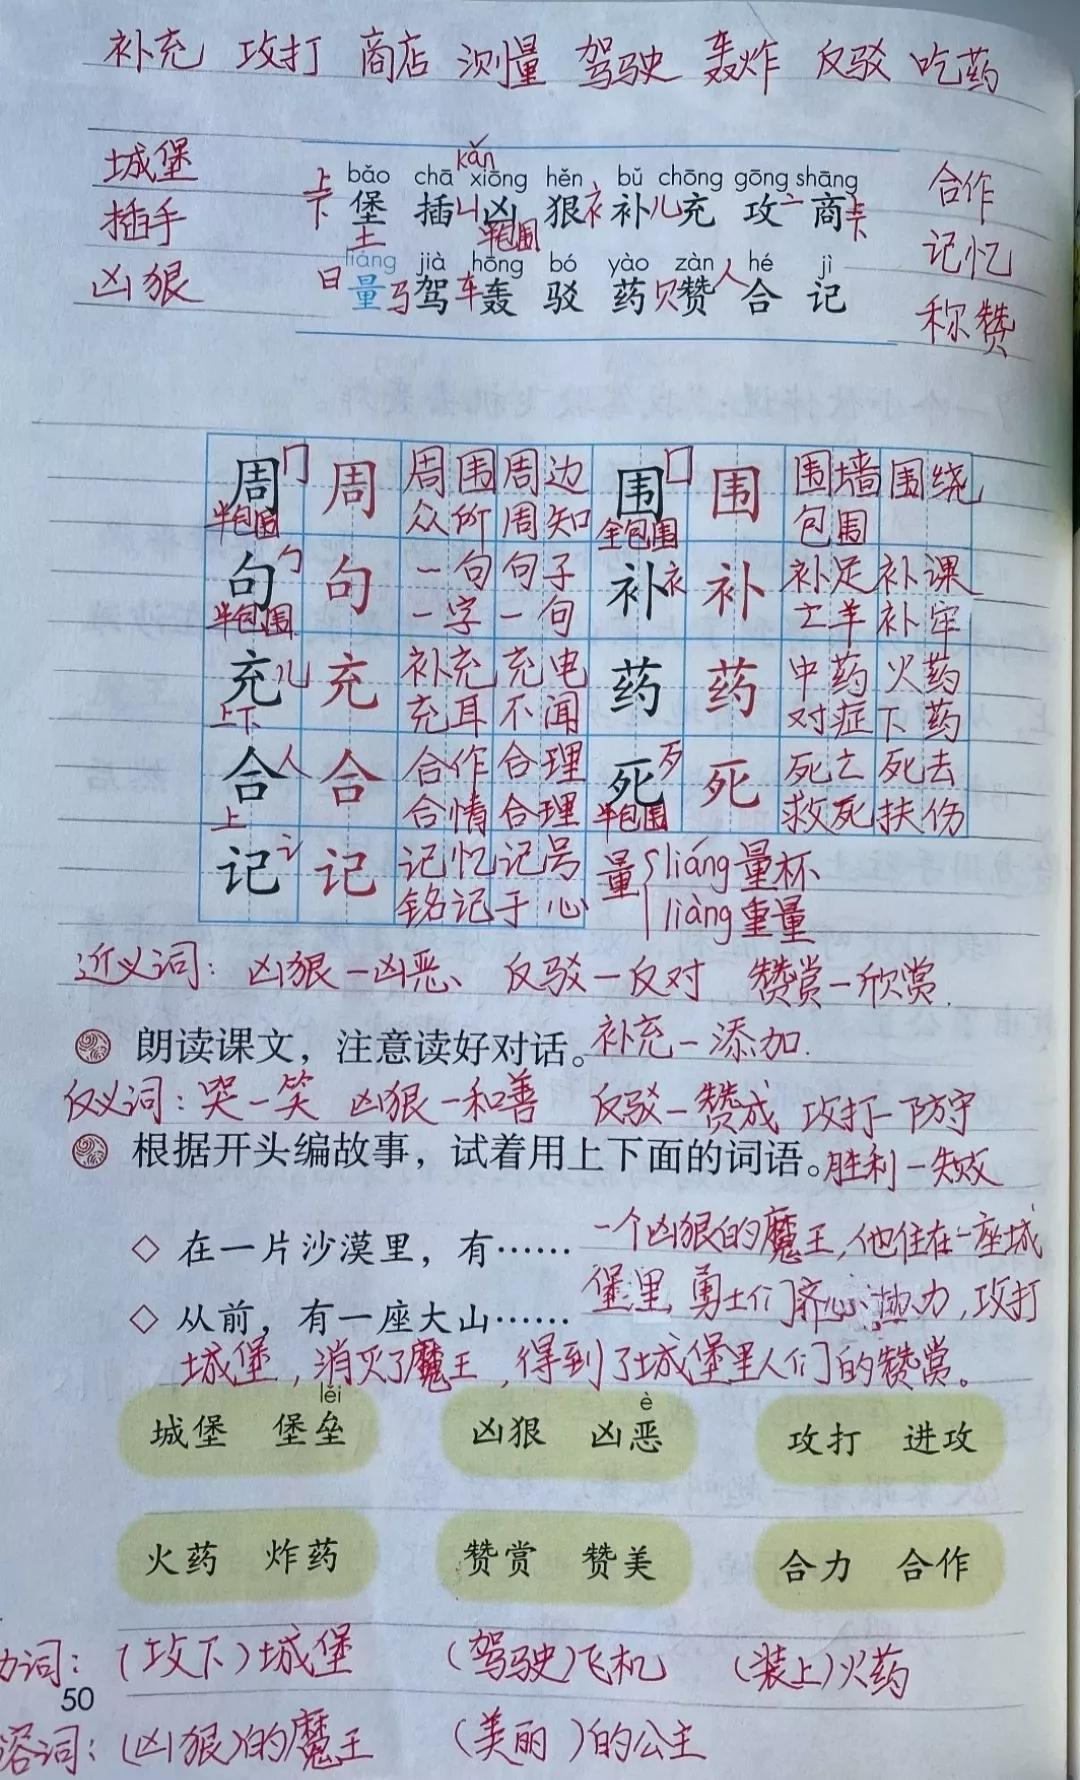 补充 攻打 商店 测量 驾驶 轰炸 反驳 吃药
城堡
插手
凶狠
kǎn
bǎo chā xiōng hěn bǔ chōng gōng shāng
上下 堡 插 凵 凶 狠 衤 补 儿 充 攻 亠 商
土 半包围
liáng jià hōng bó yào zàn hé jì
日 量 马 驾 车 轰 驳 药 贝 赞 人 合 记
合作
记忆
称赞
周 冂 周 周围 周边 围 囗 围 围墙 围绕
半包围 众所周知 全包围 包围
句 勹 句 一句 句子 补 衤 补 补足 补课
半包围 一字一句 亡羊补牢
充 儿 充 补充 充电 药 药 中药 火药
上下 充耳不闻 对症下药
合 人 合 合作 合理 死 歹 死 死亡 死去
上 合情合理 半包围 救死扶伤
记 讠 记 记忆 记号 量 liáng 量杯
铭记于心 liàng 重量
近义词：凶狠—凶恶、 反驳—反对 赞赏—欣赏.
朗读课文，注意读好对话。补充—添加.
反义词：哭—笑 凶狠—和善 反驳—赞成 攻打—防守
根据开头编故事，试着用上下面的词语。胜利—失败
◇ 在一片沙漠里，有…… 一个凶狠的魔王，他住在一座城
◇ 从前，有一座大山…… 堡里，勇士们齐心 力，攻打
城堡，消灭了魔王，得到了城堡里人们的赞赏。
lěi è
城堡 堡垒 凶狠 凶恶 攻打 进攻
火药 炸药 赞赏 赞美 合力 合作
词：（攻下）城堡 （驾驶）飞机 （装上）火药
50
容词：（凶狠）的魔王 （美丽 ）的公主